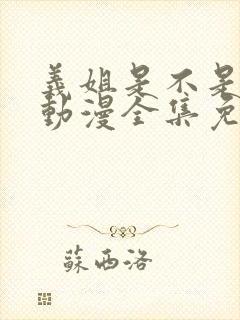 義姐是不是
動漫全集免
蘇西洛